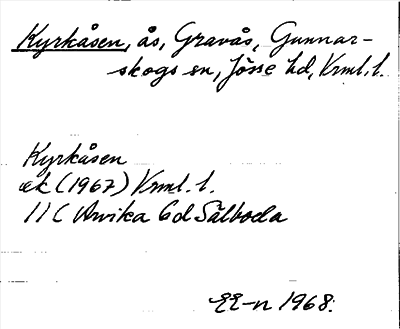 Kyrkåsen, ås, Gravås, Gunnar-
skogs sn, Jösse hd, Vrml. l.
Kyrkåsen
ek (1967) Vrml. l.
11 C Arvika 6d Sälboda
EE-n 1968.